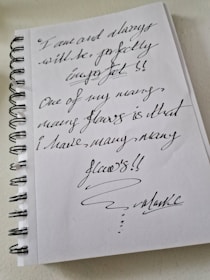 "I am and always
will be, perfectly
imperfect!!
One of my many,
many flaws is that
I have many many
flaws!!